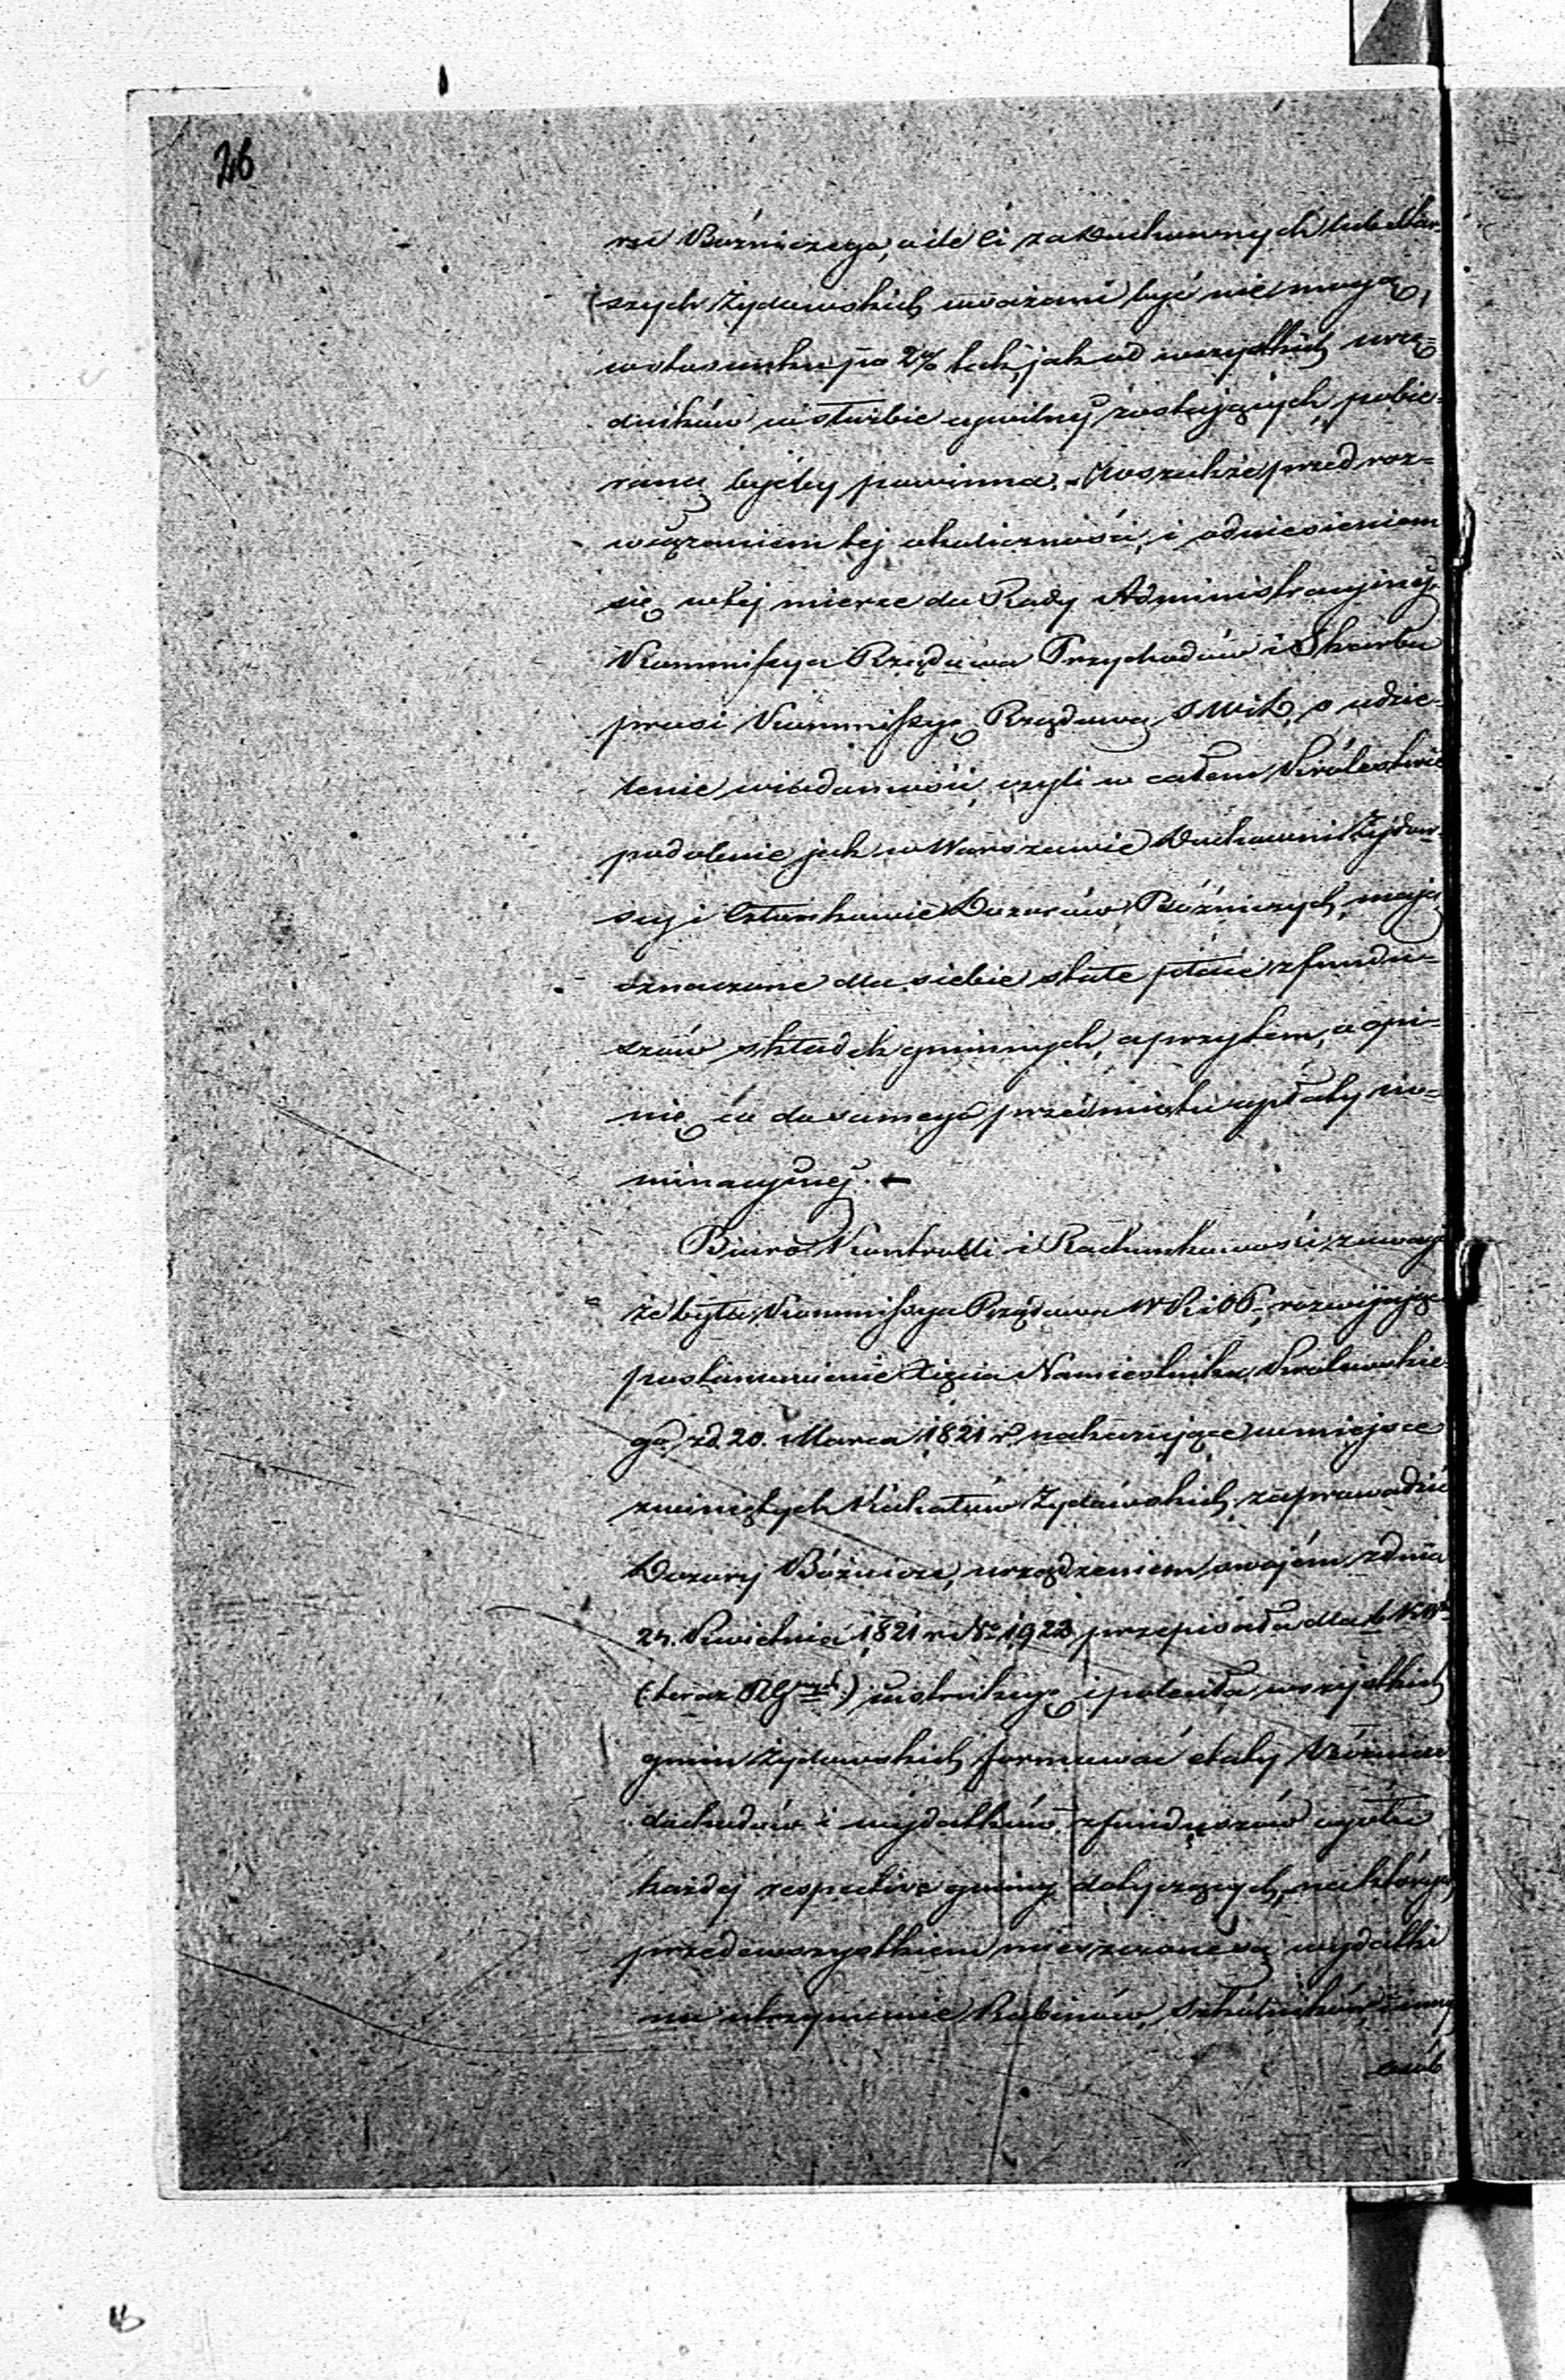 26
ru Bóżniczego, o ile ci za Duchownych lub Star-
szych Żydowskich uważani być nie mogą,
w stosunku po 2% tak, jak od wszystkich urzę-
dników w służbie cywilnéj zostających, pobie-
raną byćby powinna. - Wszakże przed roz-
wiązaniem tej okoliczności, i odniesieniem
się w tej mierze do Rady Administracyjnej,
Kommissya Rządowa Przychodów i Skarbu
prosi Kommissyę Rządową S W i D, o udzie-
lenie wiadomości, czyli w całem Królestwie
podobnie jak w Warszawie Duchowni Żydow-
scy i Członkowie Dozorów Bóżniczych, mają
oznaczone dla siebie stałe płace z fundu-
szów składek gminnych, a przytem, o opi-
nię co do samego przedmiotu opłaty no-
minacyjnéj. -
Biuro Kontrolli i Rachunkowości, uważa
że była Kommissya Rządowa W R i O P, rozwijając
postanowienie Xięcia Namiestnika Królewskie-
go, z d. 20. Marca 1821 r. nakazujące w miejsce
zwiniętych Kahałów Żydowskich, zaprowadzić
Dozory Bóżnicze, urządzeniem swojém z dnia
24. Kwietnia 1821 r. No 1923 przepisała dla b. KW
(teraz RG) instrukcyę i poleciła wszystkich
gmin Żydowskich formować etaty Bóżnicze
dochodów i wydatków z funduszów ogółu
każdej respective gminy dotyczących, na których
przedewszystkiem mieszczone są wydatki
na utrzymanie Rabinów, Szkolników, i innych
osób